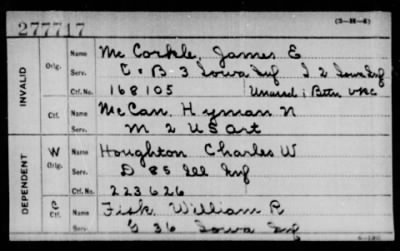 277717 (3-H-4)
INVALID
Orig. Name Mc Corkle, James E
Serv. C & B 3 Iowa Inf I 2 Iowa Inf
Ctf. No. 168105 Unassd; Batn VRC
Ctf. Name McCan, Hyman N
Serv. M 2 US Art
DEPENDENT
W Orig. Name Houghton Charles W
Serv. D 85 Ill Inf
Ctf. No. 223626
C Ctf. Name Fisk, William R
Serv. G 36 Iowa Inf